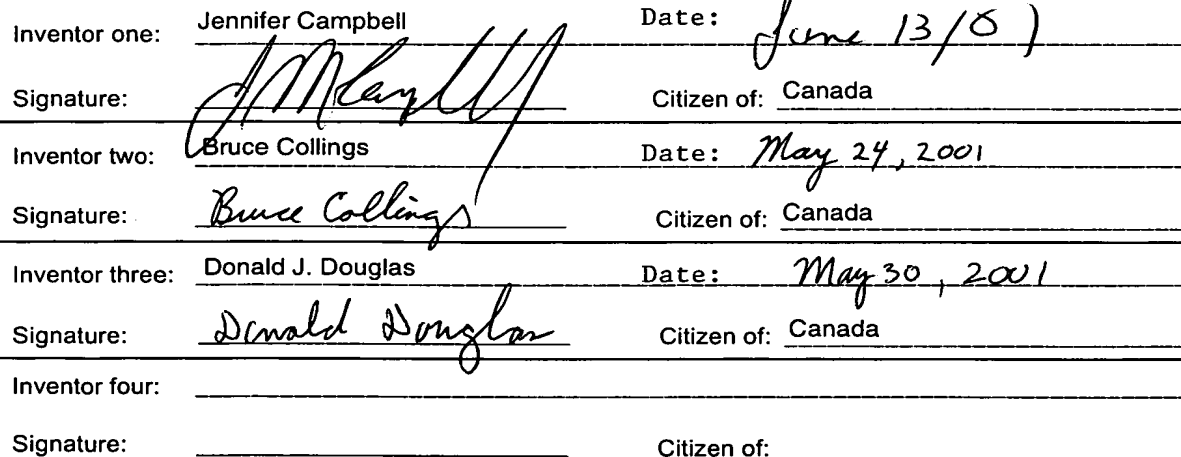 Inventor one: Jennifer Campbell Date: June 13/01
Signature: JMCampbell Citizen of: Canada
Inventor two: Bruce Collings Date: May 24, 2001
Signature: Bruce Collings Citizen of: Canada
Inventor three: Donald J. Douglas Date: May 30, 2001
Signature: Donald Douglas Citizen of: Canada
Inventor four:
Signature: Citizen of: